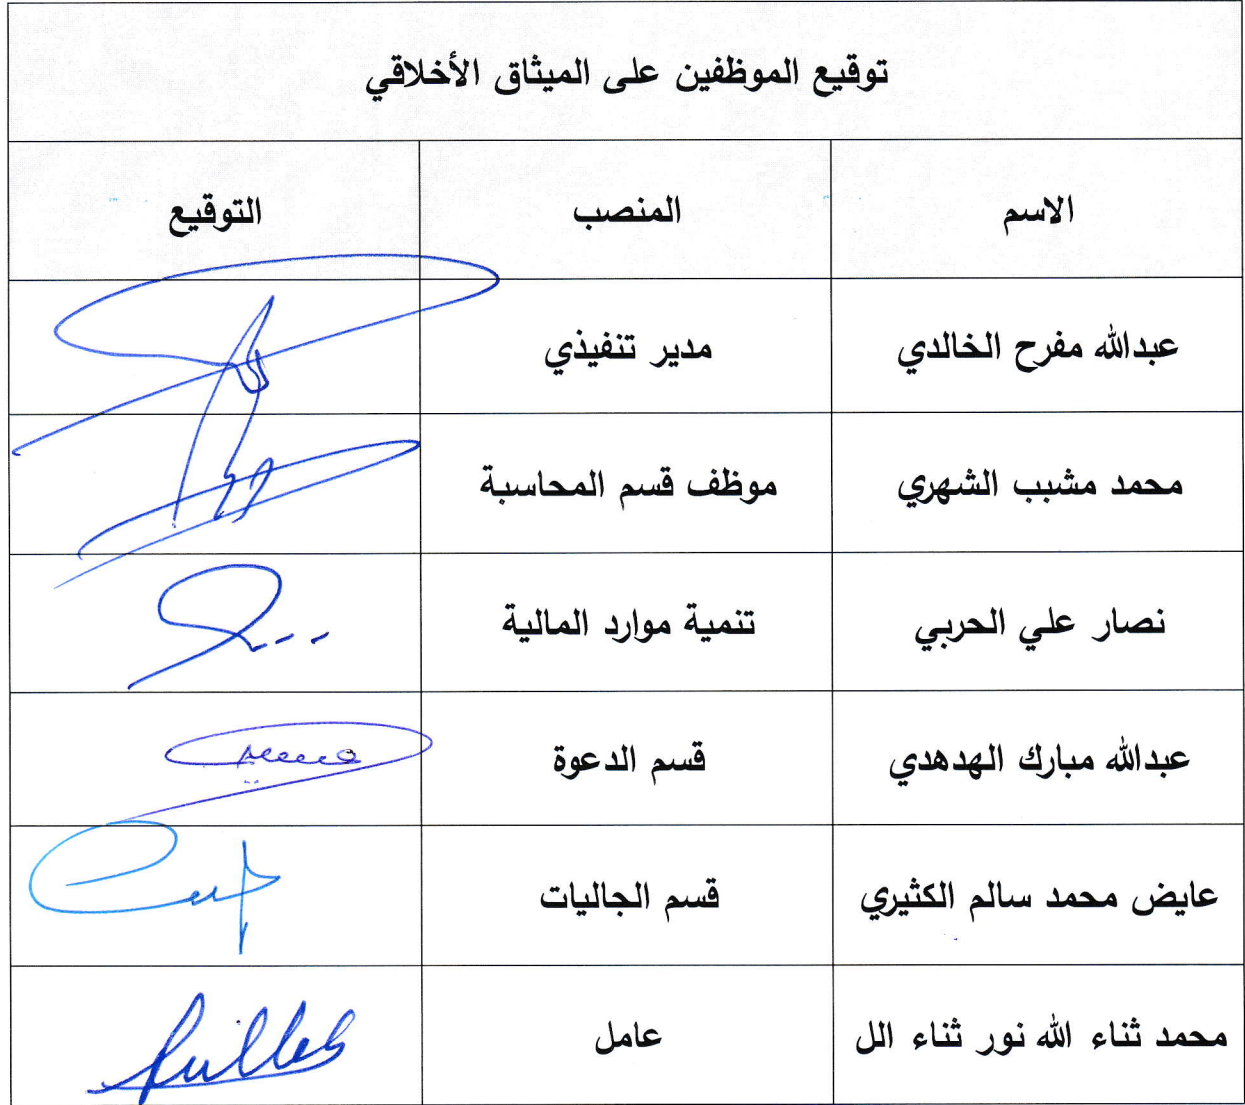 توقيع الموظفين على الميثاق الأخلاقي
الاسم المنصب التوقيع
عبدالله مفرح الخالدي مدير تنفيذي
محمد مشبب الشهري موظف قسم المحاسبة
نصار علي الحربي تنمية موارد المالية
عبدالله مبارك الهدهدي قسم الدعوة
عايض محمد سالم الكثيري قسم الجاليات
محمد ثناء الله نور ثناء الل عامل